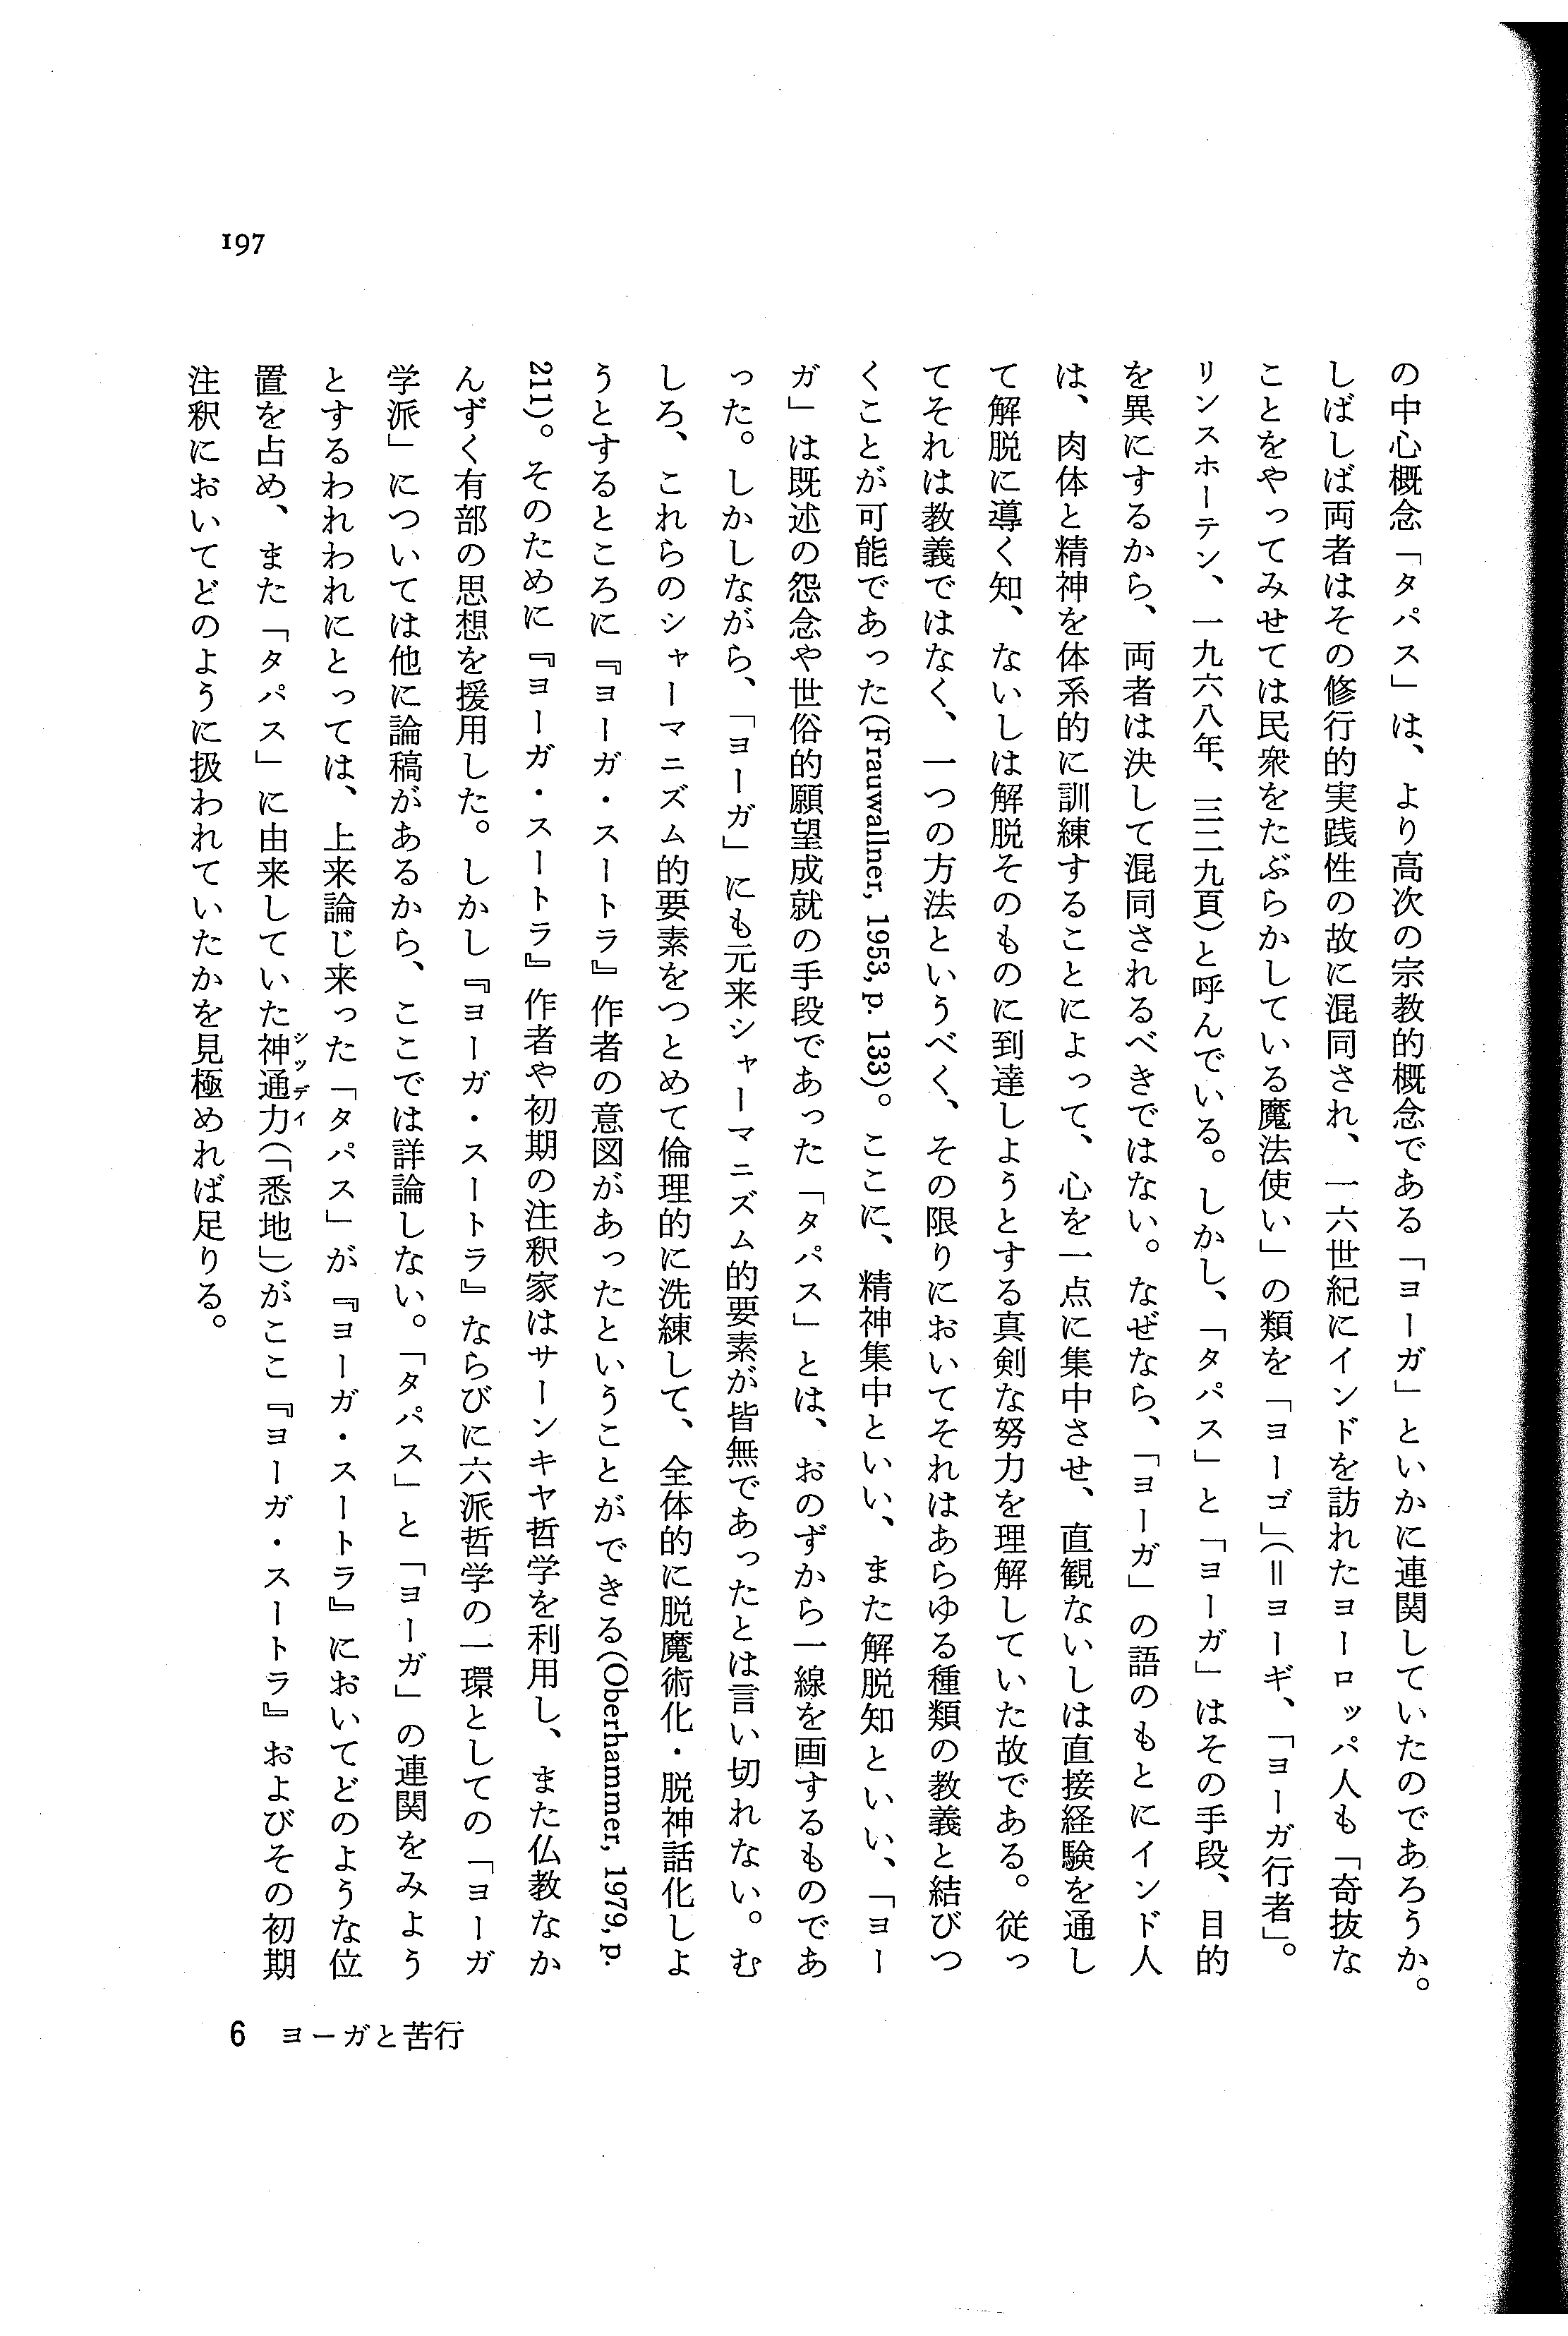 197
の中心概念「タパス」は、より高次の宗教的概念である「ヨーガ」といかに連関していたのであろうか。
しばしば両者はその修行的実践性の故に混同され、一六世紀にインドを訪れたヨーロッパ人も「奇抜な
ことをやってみせては民衆をたぶらかしている魔法使い」の類を「ヨーゴ」(＝ヨーギ、「ヨーガ行者」。
リンスホーテン、一九六八年、三二九頁)と呼んでいる。しかし、「タパス」と「ヨーガ」はその手段、目的
を異にするから、両者は決して混同されるべきではない。なぜなら、「ヨーガ」の語のもとにインド人
は、肉体と精神を体系的に訓練することによって、心を一点に集中させ、直観ないしは直接経験を通し
て解脱に導く知、ないしは解脱そのものに到達しようとする真剣な努力を理解していた故である。従っ
てそれは教義ではなく、一つの方法というべく、その限りにおいてそれはあらゆる種類の教義と結びつ
くことが可能であった(Frauwallner, 1953, p. 133)。ここに、精神集中といい、また解脱知といい、「ヨー
ガ」は既述の怨念や世俗的願望成就の手段であった「タパス」とは、おのずから一線を画するものであ
った。しかしながら、「ヨーガ」にも元来シャーマニズム的要素が皆無であったとは言い切れない。む
しろ、これらのシャーマニズム的要素をつとめて倫理的に洗練して、全体的に脱魔術化・脱神話化しよ
うとするところに『ヨーガ・スートラ』作者の意図があったということができる(Oberhammer, 1979, p.
211)。そのために『ヨーガ・スートラ』作者や初期の注釈家はサーンキヤ哲学を利用し、また仏教なか
んずく有部の思想を援用した。しかし『ヨーガ・スートラ』ならびに六派哲学の一環としての「ヨーガ
学派」については他に論稿があるから、ここでは詳論しない。「タパス」と「ヨーガ」の連関をみよう
とするわれわれにとっては、上来論じ来った「タパス」が『ヨーガ・スートラ』においてどのような位
置を占め、また「タパス」に由来していた神通力シッディ(「悉地」)がここ『ヨーガ・スートラ』およびその初期
注釈においてどのように扱われていたかを見極めれば足りる。
6 ヨーガと苦行